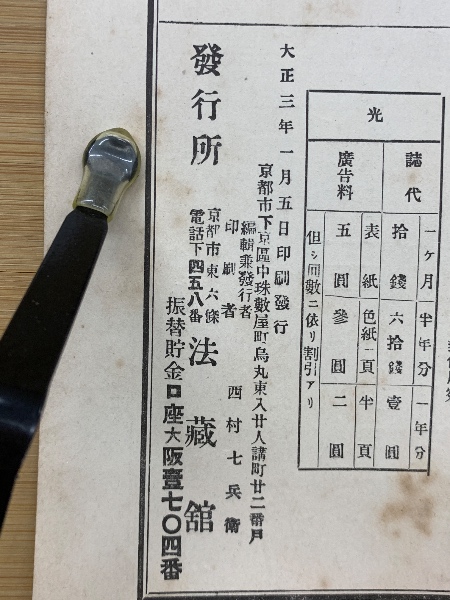 光
誌代
一ヶ月 半年分 一年分
拾錢 六拾錢 壹圓
廣告料
表紙 色紙頁 半頁
五圓 參圓 二圓
但シ回數ニ依リ割引アリ
大正三年一月五日印刷發行
京都市下京區中珠數屋町烏丸東入廿人講町廿二番戸
編輯兼發行者
印刷者
西村七兵衛
發行所
京都市東六條
電話下四五八番
法藏舘
振替貯金口座大阪壹七〇四番